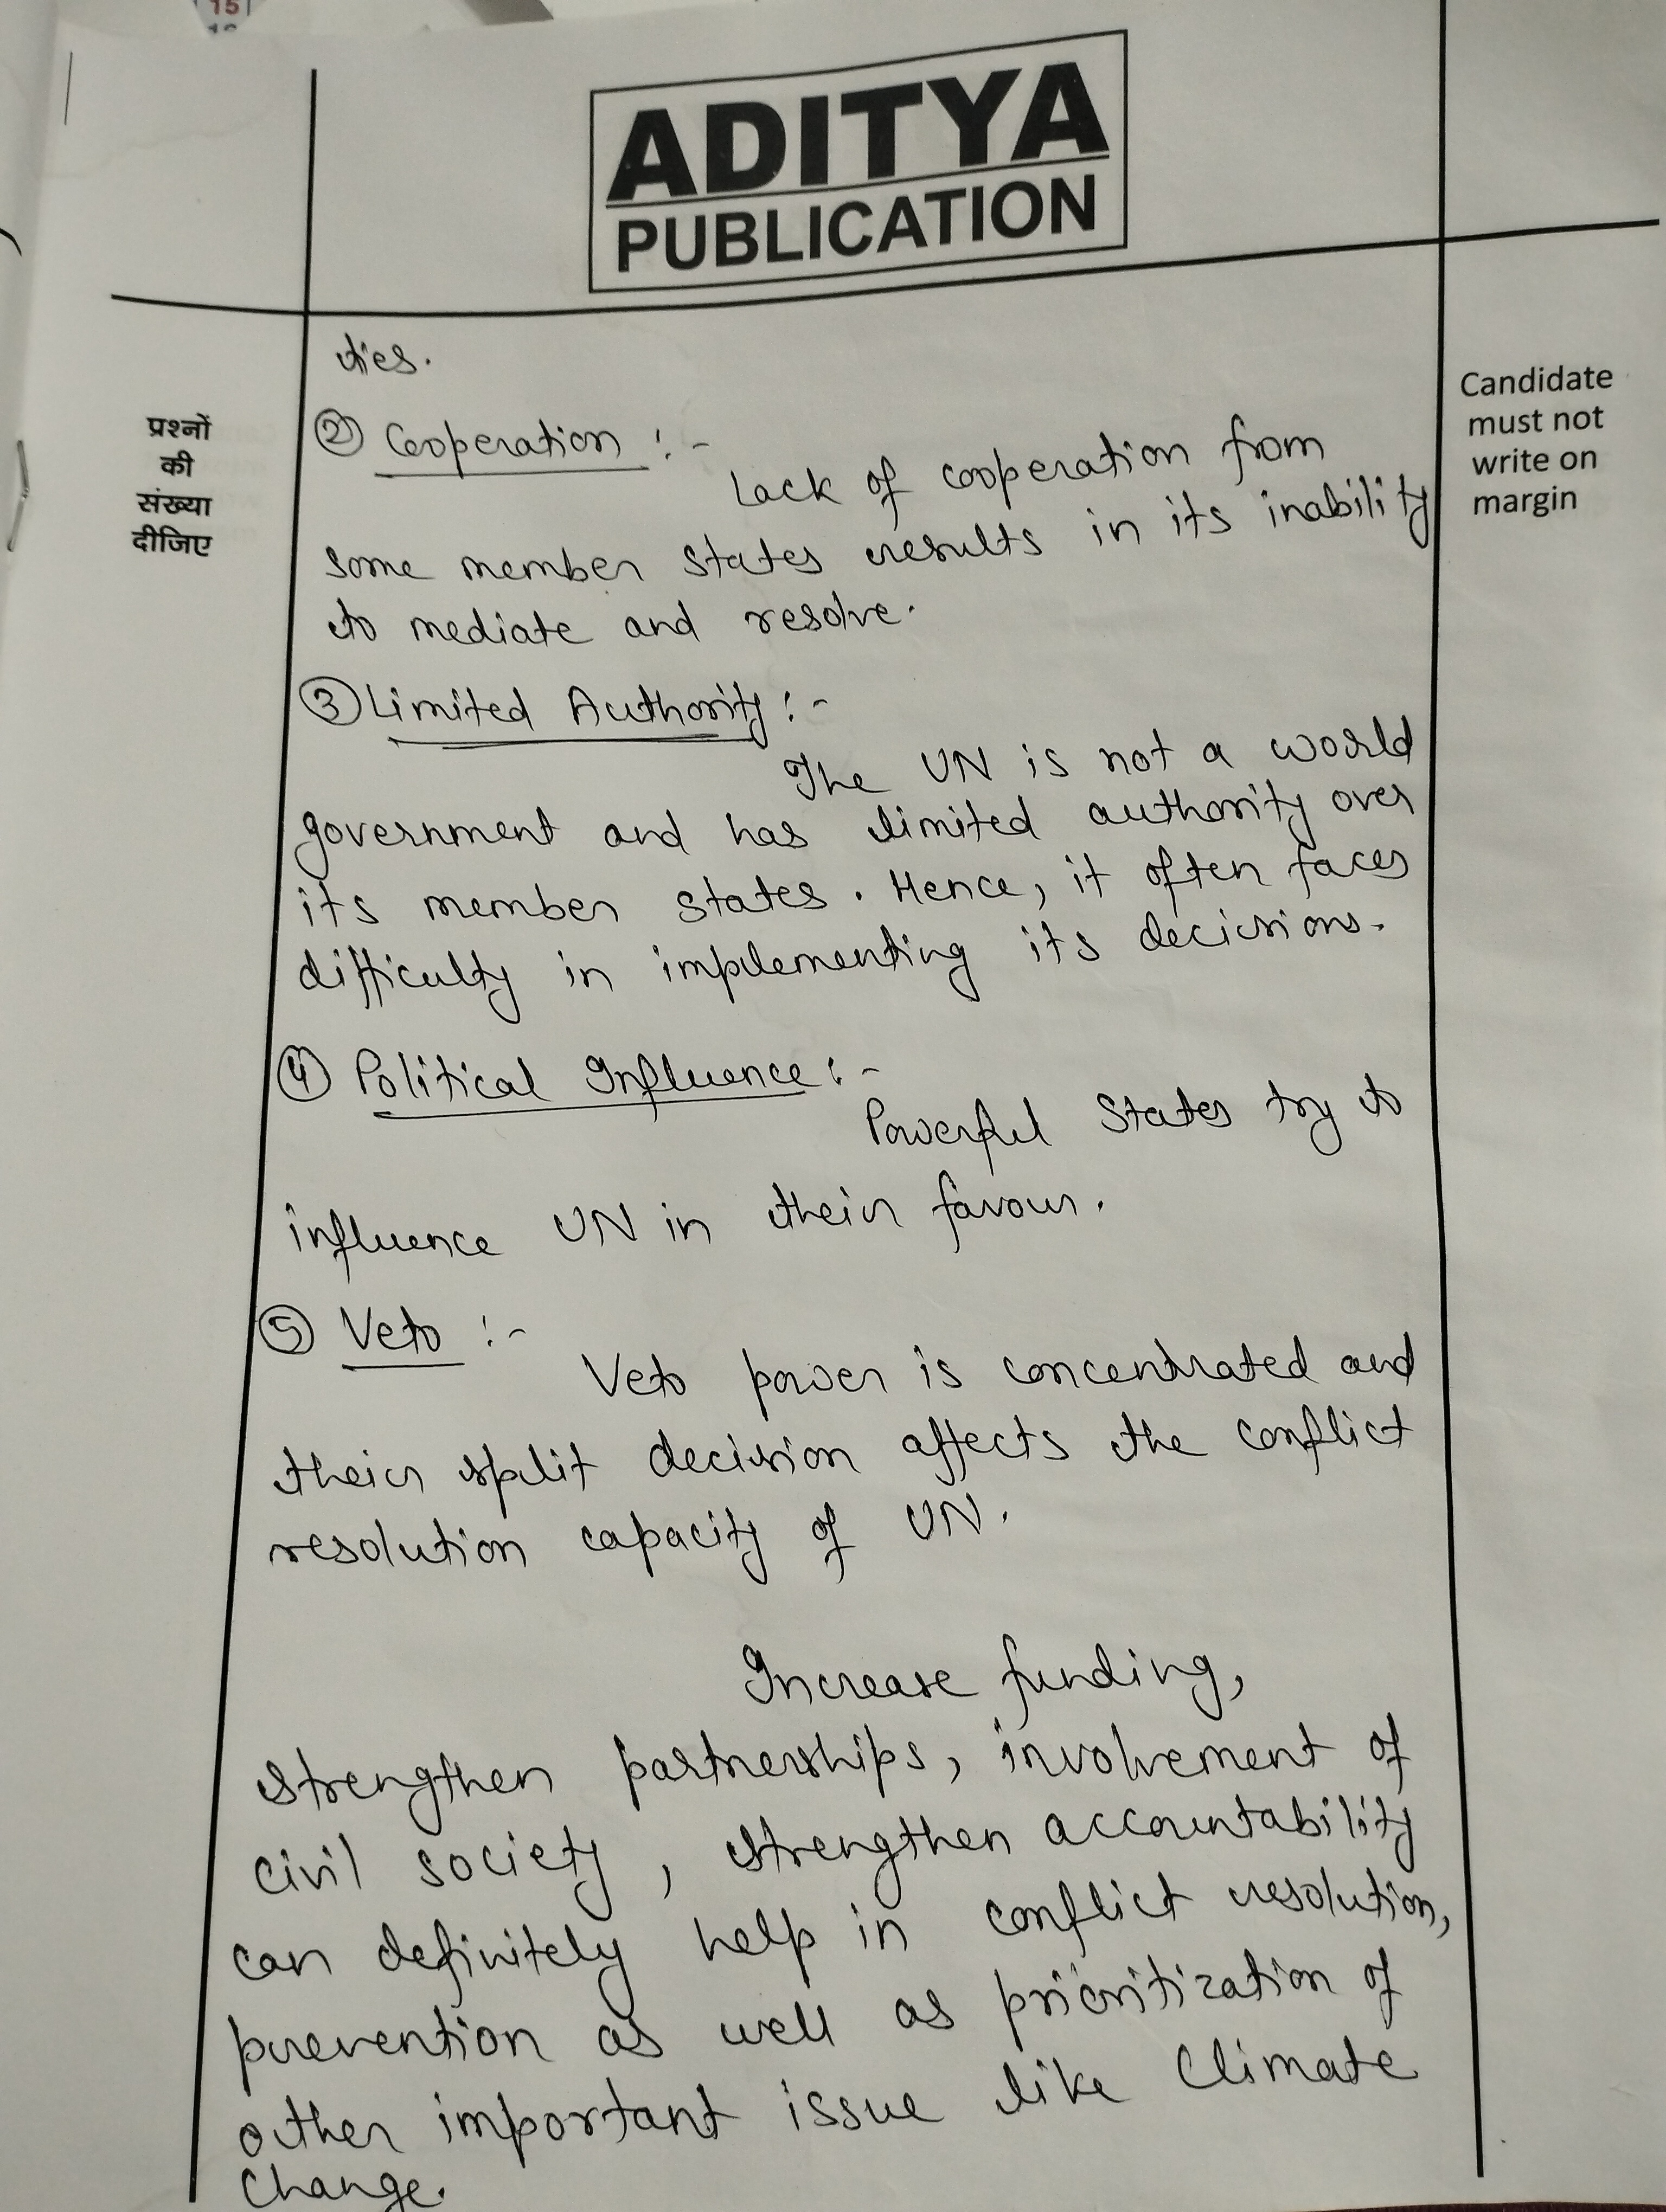 15
ADITYA
PUBLICATION
ties.
प्रश्नों
की
संख्या
दीजिए
Candidate
must not
write on
margin
② Cooperation :-
Lack of cooperation from
some member states results in its inability
to mediate and resolve.
③ Limited Authority :-
The UN is not a world
government and has limited authority over
its member states. Hence, it often faces
difficulty in implementing its decisions.
④ Political Influence :-
Powerful States try to
influence UN in their favour.
⑤ Veto :-
Veto power is concentrated and
their split decision affects the conflict
resolution capacity of UN.
Increase funding,
strengthen partnerships, involvement of
civil society, strengthen accountability
can definitely help in conflict resolution,
prevention as well as prioritization of
other important issue like Climate
Change.